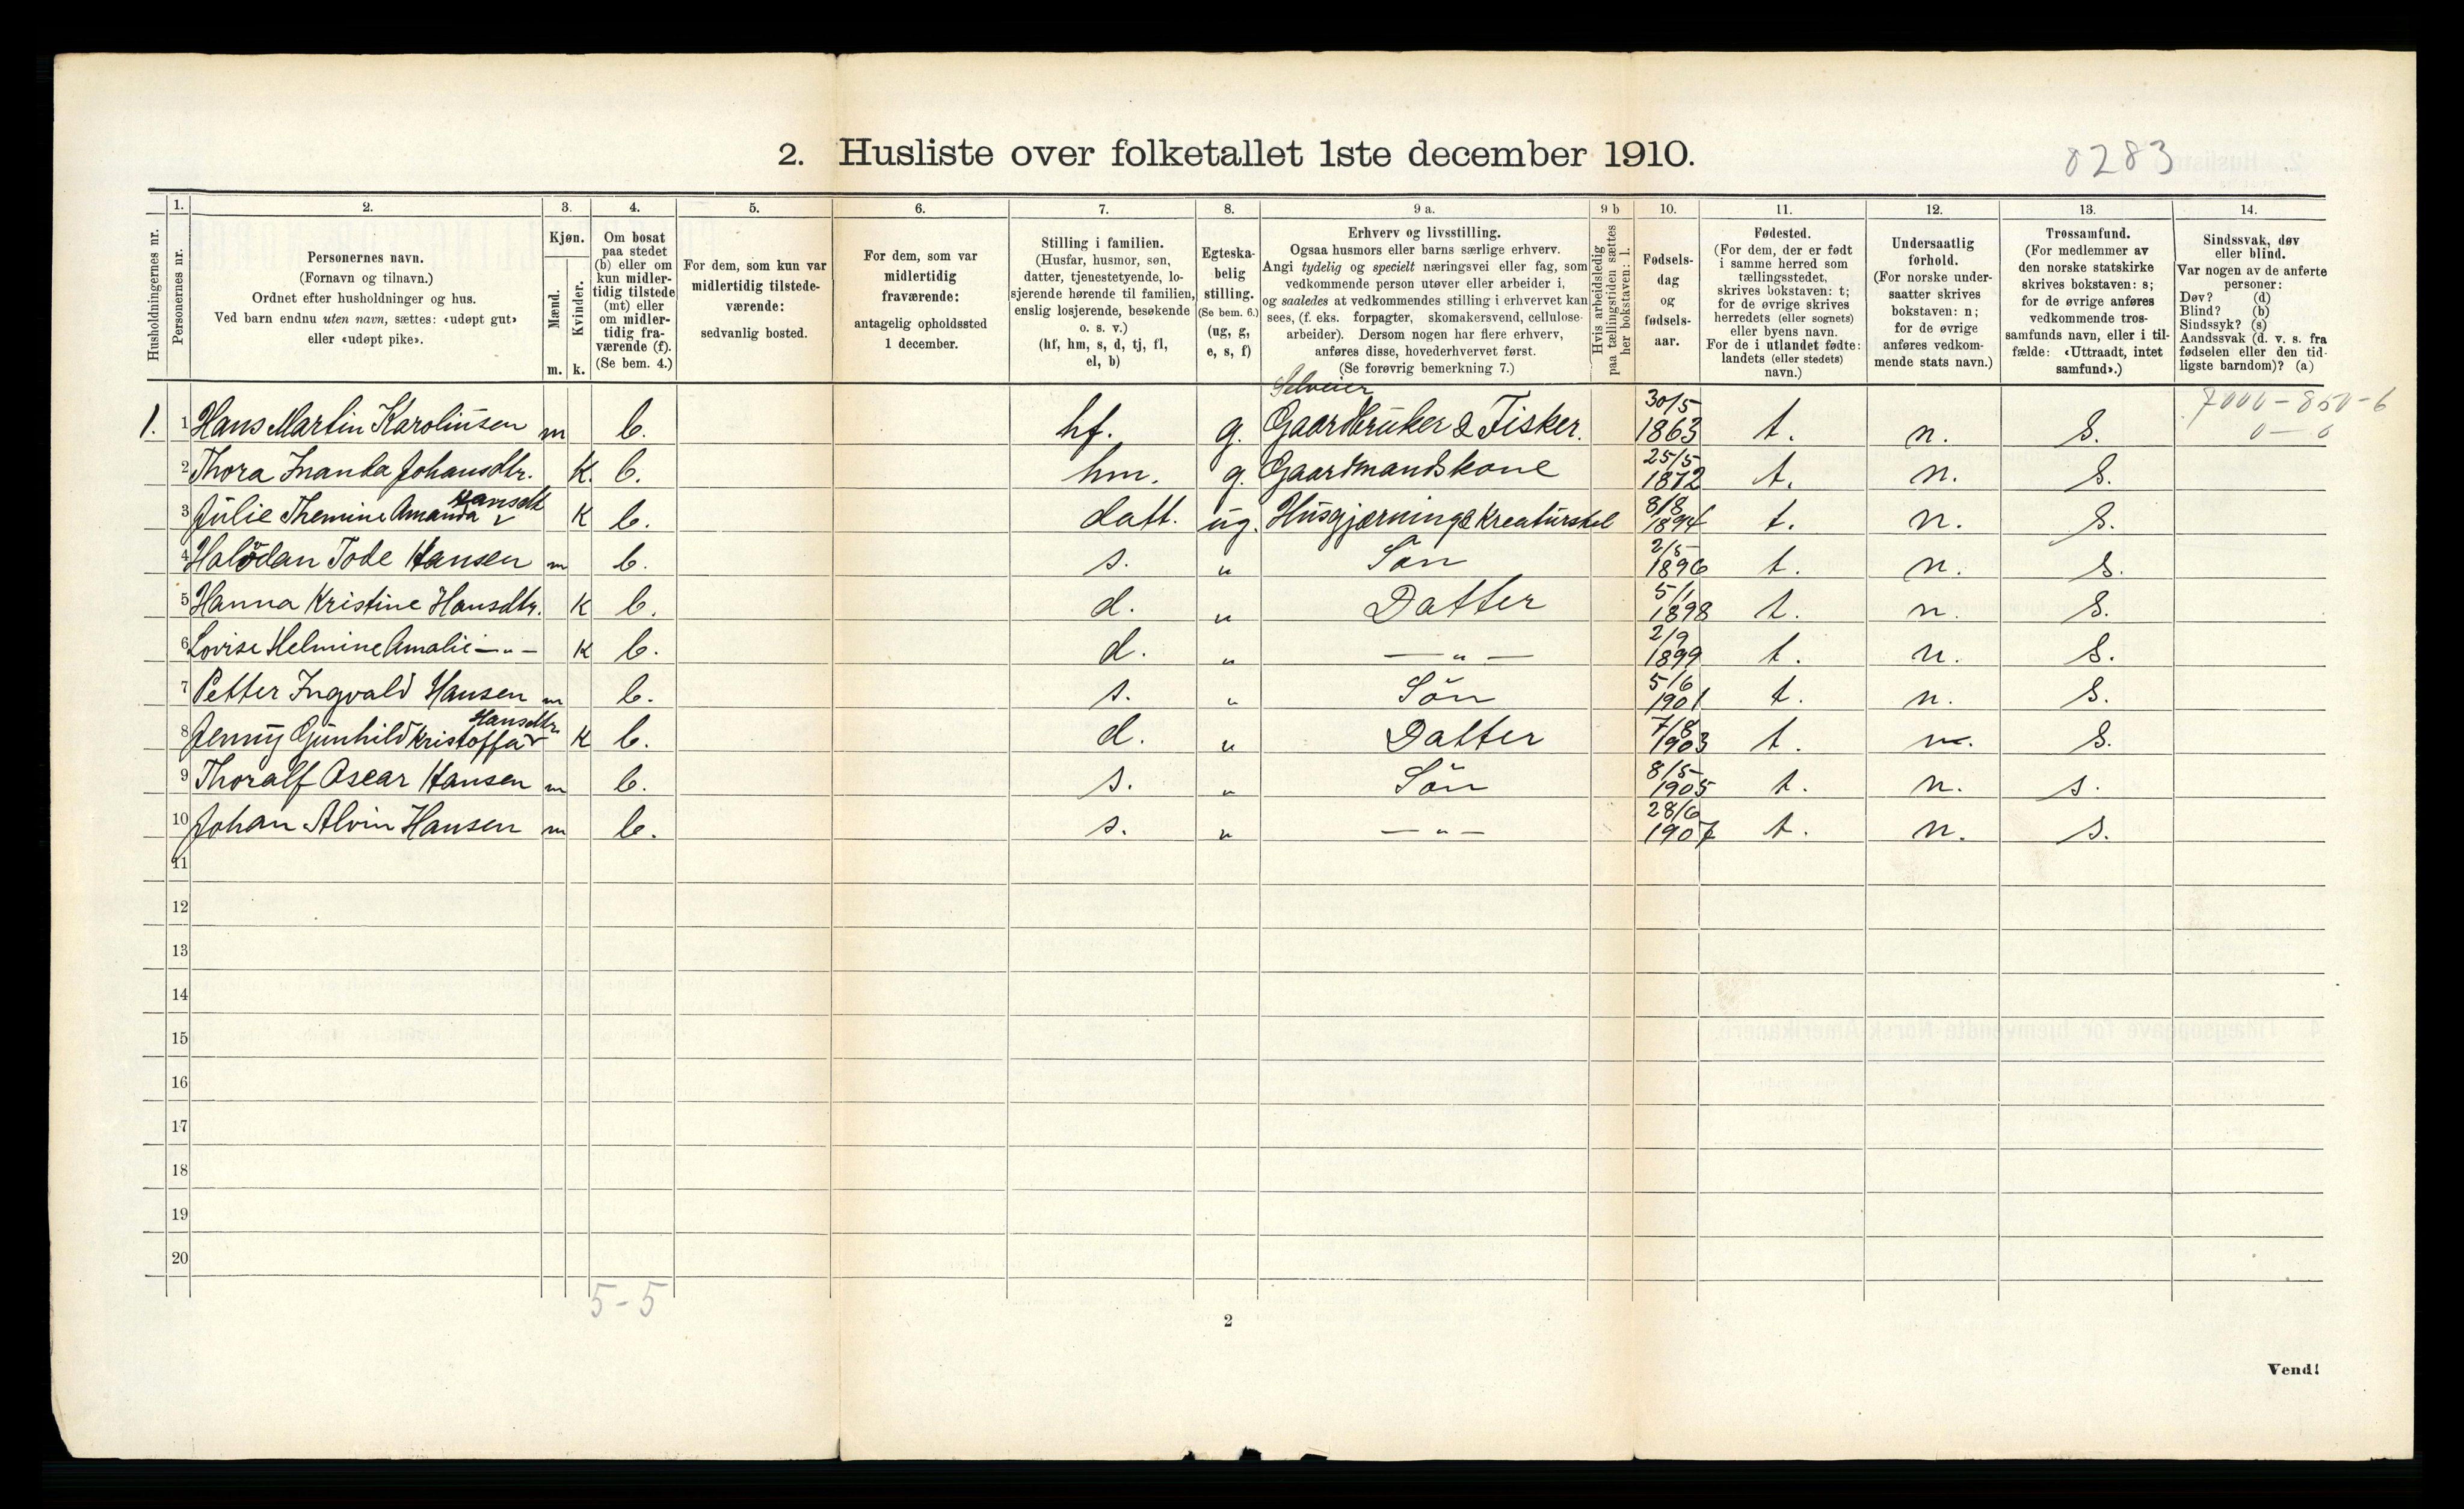 2. Husliste over folketallet 1ste december 1910.
8283
1. 2. 3. 4. 5. 6. 7. 8. 9 a. 9 b 10. 11. 12. 13. 14.
Husholdningernes nr.
Personernes nr.
Personernes navn.
(Fornavn og tilnavn.)
Ordnet efter husholdninger og hus.
Ved barn endnu uten navn, sættes: «udøpt gut»
eller «udøpt pike».
Kjøn.
Mænd.
Kvinder.
m. k.
Om bosat
paa stedet
(b) eller om
kun midler-
tidig tilstede
(mt) eller
om midler-
tidig fra-
værende (f).
(Se bem. 4.)
For dem, som kun var
midlertidig tilstede-
værende:
sedvanlig bosted.
For dem, som var
midlertidig
fraværende:
antagelig opholdssted
1 december.
Stilling i familien.
(Husfar, husmor, søn,
datter, tjenestetyende, lo-
sjerende hørende til familien,
enslig losjerende, besøkende
o. s. v.)
(hf, hm, s, d, tj, fl,
el, b)
Egteska-
belig
stilling.
(Se bem. 6.)
(ug, g,
e, s, f)
Erhverv og livsstilling.
Ogsaa husmors eller barns særlige erhverv.
Angi tydelig og specielt næringsvei eller fag, som
vedkommende person utøver eller arbeider i,
og saaledes at vedkommendes stilling i erhvervet kan
sees, (f. eks. forpagter, skomakersvend, cellulose-
arbeider). Dersom nogen har flere erhverv,
anføres disse, hovederhvervet først.
(Se forøvrig bemerkning 7.)
Hvis arbeidsledig
paa tællingstiden sættes
her bokstaven: l.
Fødsels-
dag
og
fødsels-
aar.
Fødested.
(For dem, der er født
i samme herred som
tællingsstedet,
skrives bokstaven: t;
for de øvrige skrives
herredets (eller sognets)
eller byens navn.
For de i utlandet fødte:
landets (eller stedets)
navn.)
Undersaatlig
forhold.
(For norske under-
saatter skrives
bokstaven: n;
for de øvrige
anføres vedkom-
mende stats navn.)
Trossamfund.
(For medlemmer av
den norske statskirke
skrives bokstaven: s;
for de øvrige anføres
vedkommende tros-
samfunds navn, eller i til-
fælde: «Uttraadt, intet
samfund».)
Sindssvak, døv
eller blind.
Var nogen av de anførte
personer:
Døv? (d)
Blind? (b)
Sindssyk? (s)
Aandssvak (d. v. s. fra
fødselen eller den tid-
ligste barndom)? (a)
Selveier 30/5 7000-850-6
1. 1 Hans Martin Karoliusen m b. hf. g. Gaardbruker & Fisker. 1863 t. n. S. 0-0
25/5
2 Thora Inanda Johansdtr. K. b. hm. g. Gaardmandskone 1872 t. n. S.
Hansdtr 8/8
3 Julie Themine Amanda K b. datt. ug. Husgjærning & Kreaturstel 1894 t. n. S.
2/5
4 Halvdan Tode Hansen m b. s. " Søn 1896 t. n. S.
5/1
5 Hanna Kristine Hansdtr. K b. d. " Datter 1898 t. n. S.
2/9
6 Lovise Helmine Amalie —"— K b. d. " —"— 1899 t. n. S.
5/6
7 Petter Ingvald Hansen m b. s. " Søn 1901 t. n. S.
Hansdtr 7/8
8 Jenny Gunhild Kristoffa K b. d. " Datter 1903 t. n. S.
8/5
9 Thoralf Oscar Hansen m b. s. " Søn 1905 t. n. s.
28/6
10 Johan Alvin Hansen m b. s. " —"— 1907 t. n. s.
11
12
13
14
15
16
17
18
19
20
5-5
2
Vend!